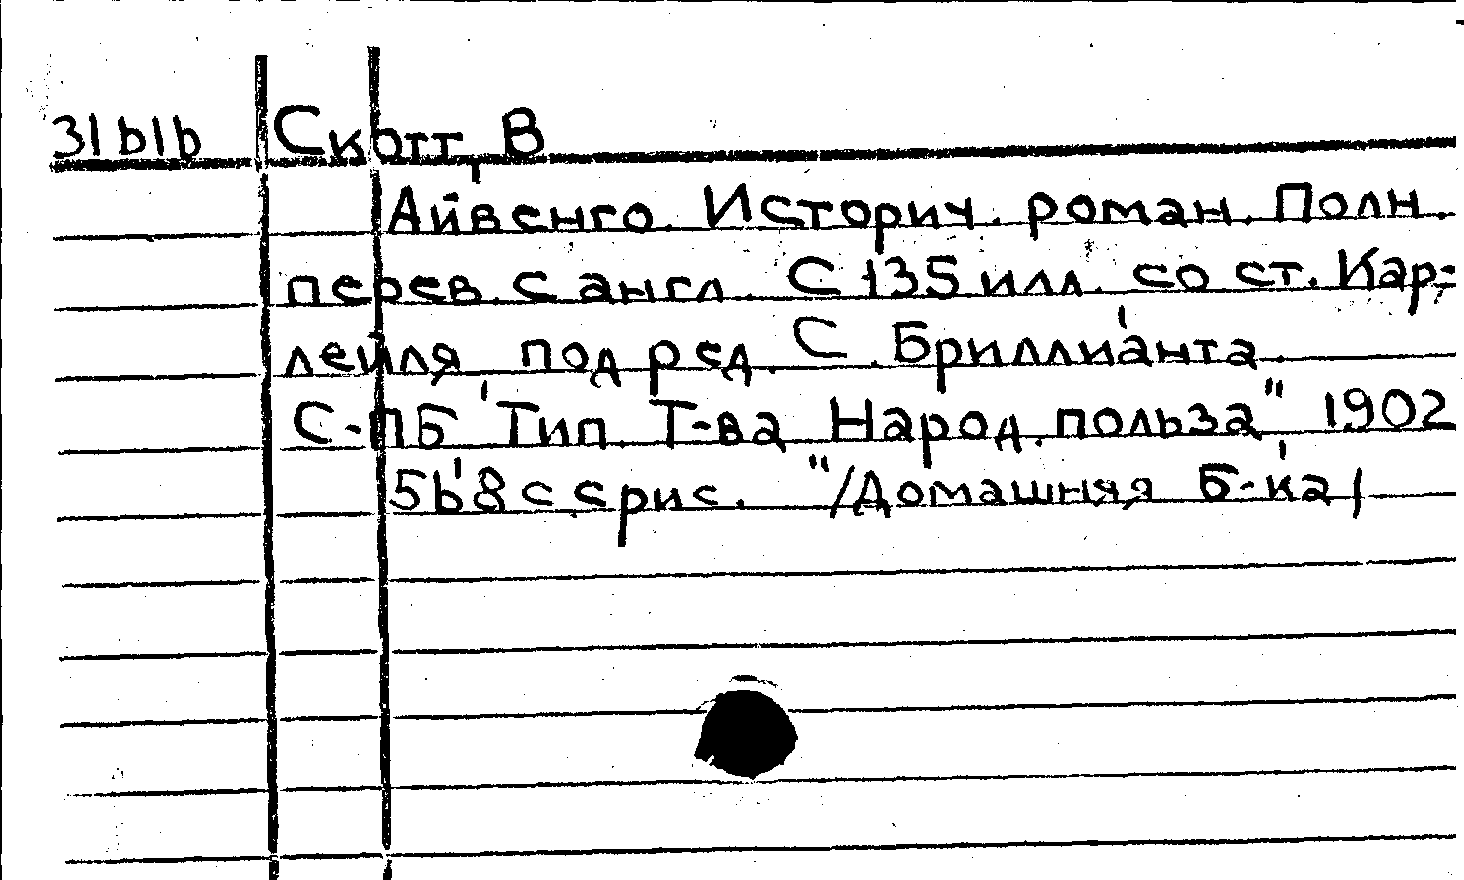 31616 Скотт, В
Айвенго. Историч. роман. Полн.
перев. с англ. С 135 илл. со ст. Кар-
лейля под ред. С. Бриллианта.
С-ПБ Тип. Т-ва "Народ. польза" 1902
568 с с рис. "/Домашняя Б-ка/